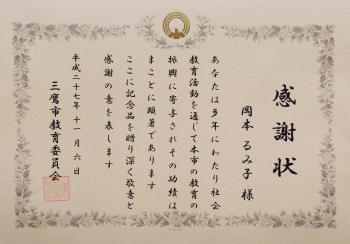 感謝状
岡本 るみ子 様
あなたは多年にわたり社会
教育活動を通じて本市の教育の
振興に寄与されその功績は
まことに顕著であります
ここに記念品を贈り深く敬意と
感謝の意を表します
平成二十七年十一月六日
三鷹市教育委員会